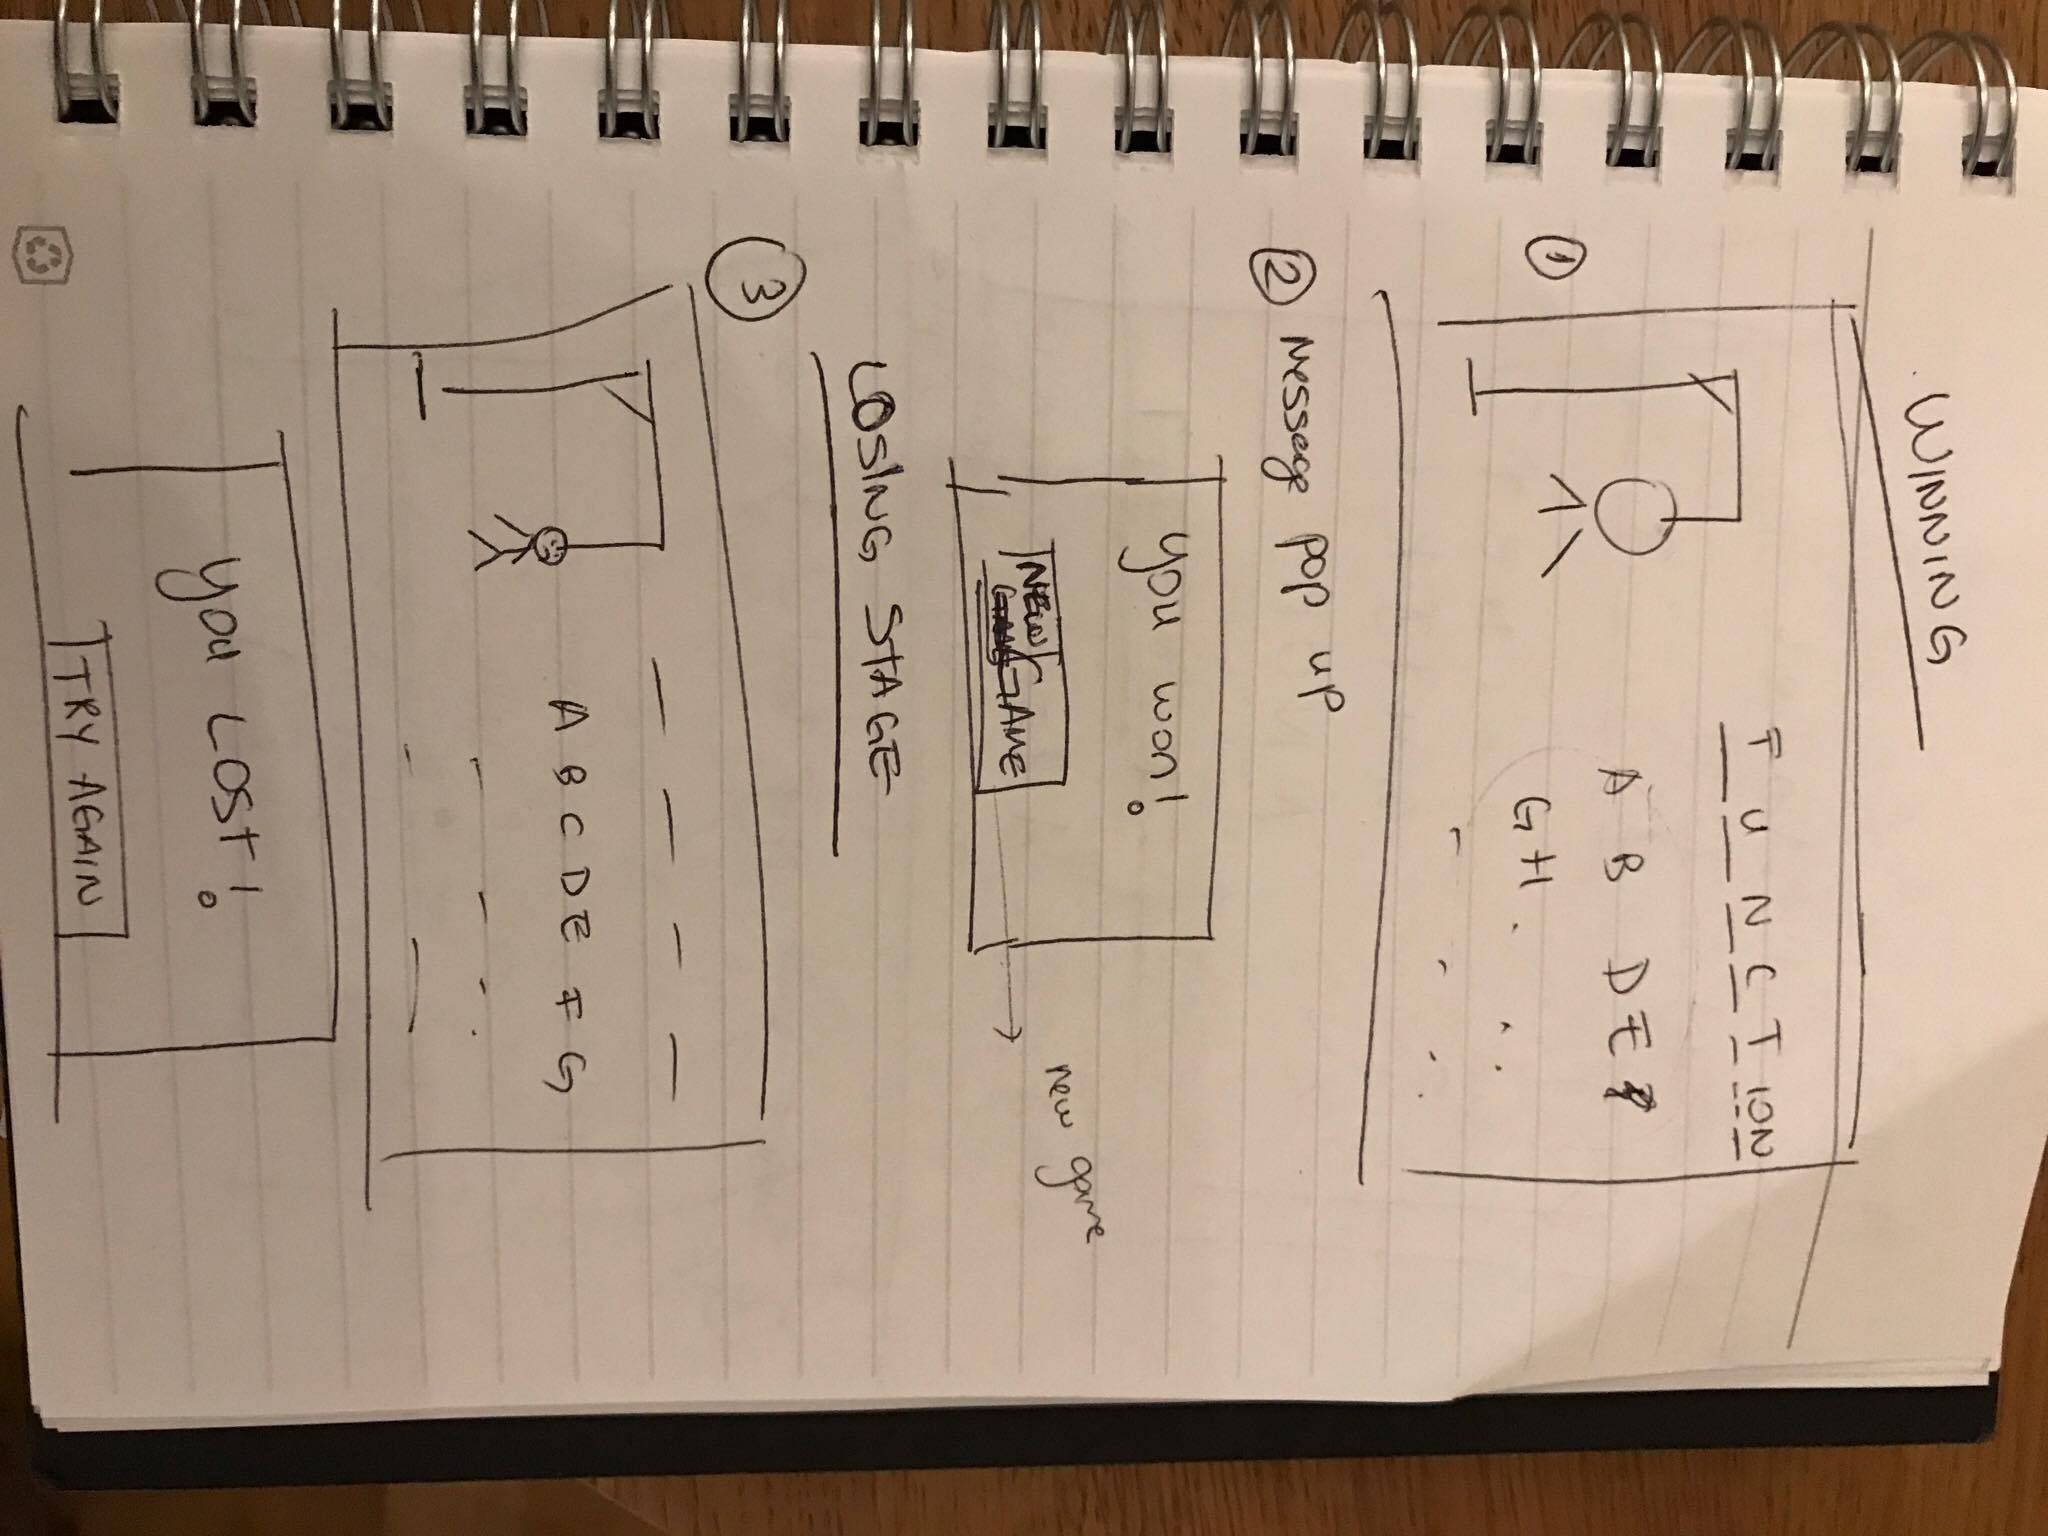 WINNING
①
F U N C T I O N
A B D E
G H
② Message pop up
you won!
NEW GAME
new game
LOSING STAGE
③
A B C D E F G
you LOST!
TRY AGAIN